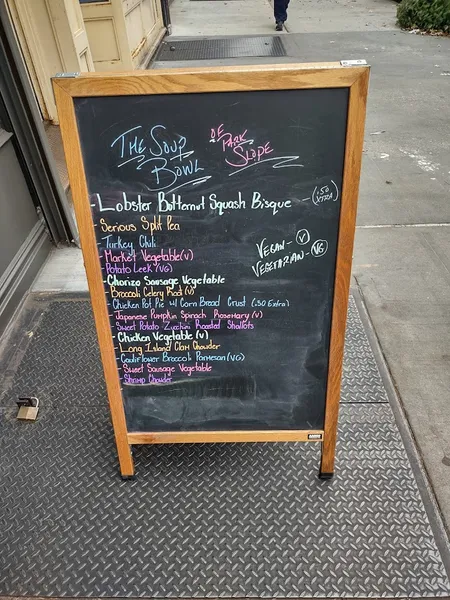 The Soup Bowl
of Park Slope
- Lobster Butternut Squash Bisque - (.50 extra)
- Serious Split Pea
- Turkey Chili
- Market Vegetable (V)
- Potato Leek (VG)
- Chorizo Sausage Vegetable
- Broccoli Celery Root (V)
- Chicken Pot Pie w/ Corn Bread Crust (.50 Extra)
- Japanese Pumpkin Spinach Rosemary (V)
- Sweet Potato Zucchini Roasted Shallots
- Chicken Vegetable (V)
- Long Island Clam Chowder
- Cauliflower Broccoli Parmesan (VG)
- Sweet Sausage Vegetable
- Shrimp Chowder
Vegan - (V)
Vegetarian - (VG)